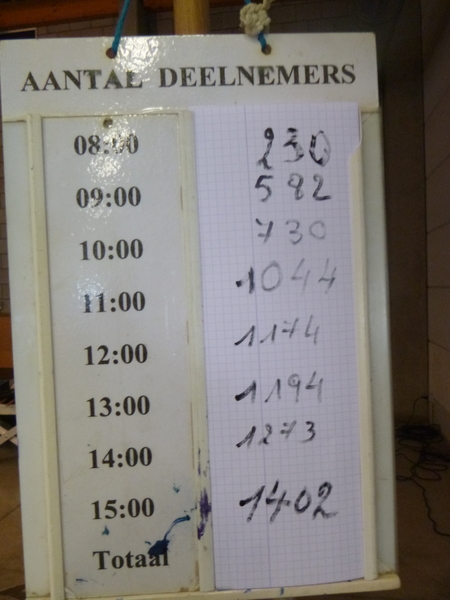 AANTAL DEELNEMERS
08:00 230
09:00 582
10:00 730
11:00 1044
12:00 1174
13:00 1194
14:00 1273
15:00 1402
Totaal